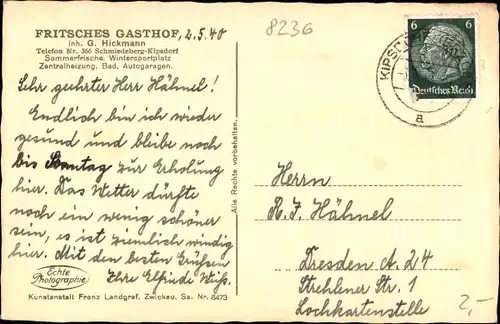 FRITSCHES GASTHOF, 2.5.40
Inh. G. Hickmann
Telefon Nr. 366 Schmiedeberg-Kipsdorf
Sommerfrische. Wintersportplatz
Zentralheizung, Bad, Autogaragen.
Sehr geehrter Herr Hähmel!
Endlich bin ich wieder
gesund und bleibe noch
bis Sonntag zur Erholung
hier. Das Wetter dürfte
noch ein wenig schöner
sein, es ist ziemlich windig
hier. Mit den besten Grüßen
Ihre Elfriede Weiß.
Echte
Photographie
Kunstanstalt Franz Landgraf, Zwickau, Sa. Nr. 8473
Alle Rechte vorbehalten.
8236
6 6
Deutsches Reich
KIPSDORF
a
Herrn
R. J. Hähmel
Dresden A. 24
Strehlener Str. 1
Lochkartenstelle
2,-